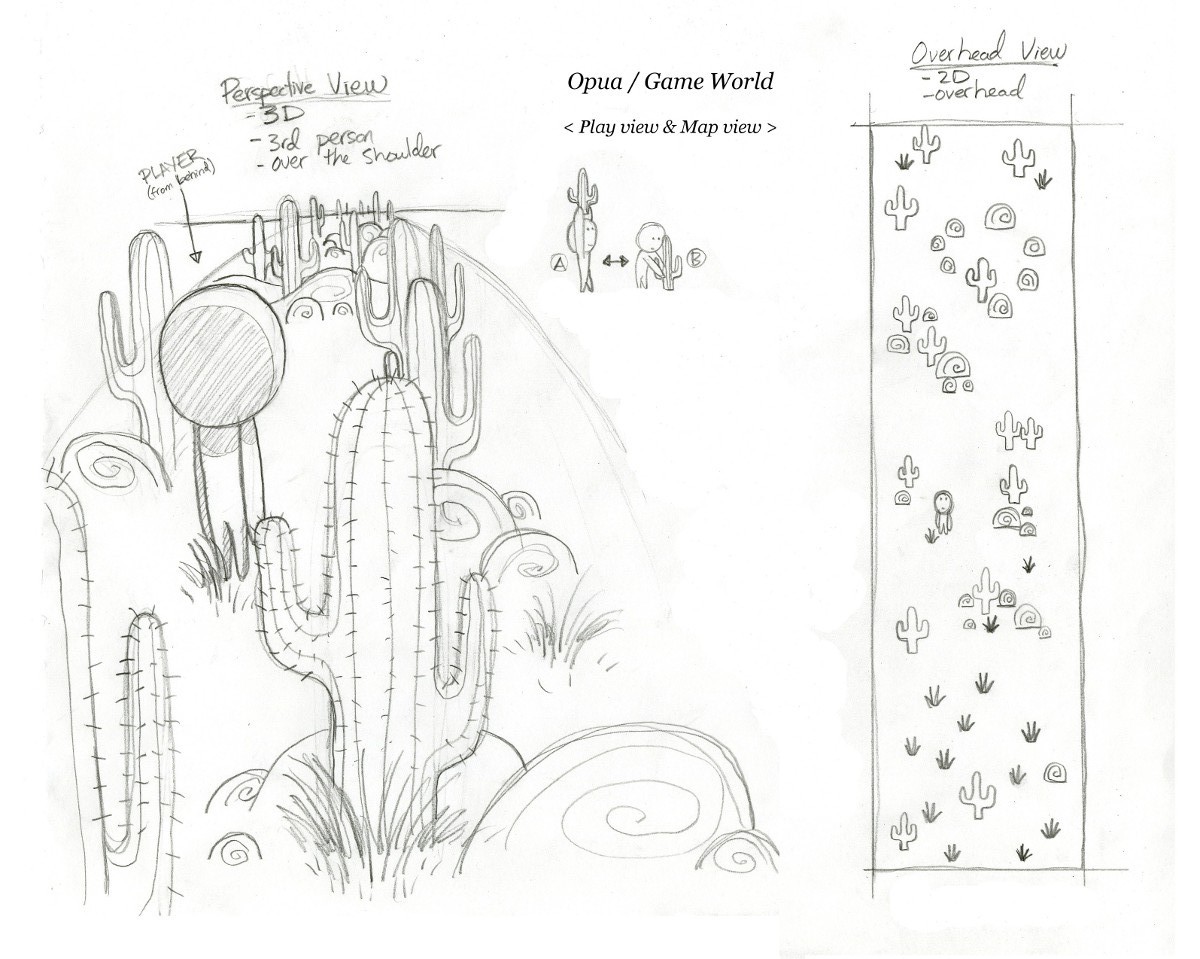 Perspective View
- 3D
- 3rd person
- over the shoulder
PLAYER
(from behind)
Opua / Game World
< Play view & Map view >
A
B
Overhead View
- 2D
- overhead